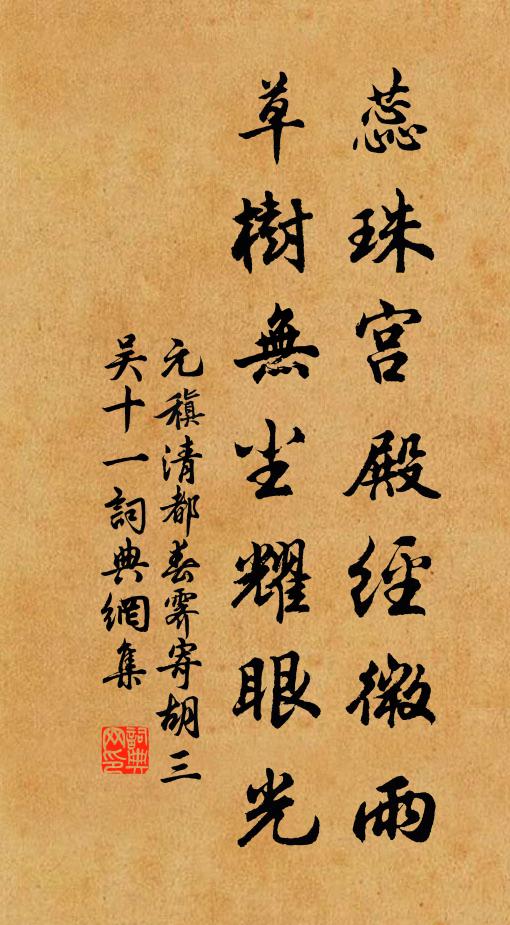 蕊珠宮殿經微雨
草樹無尘耀眼光
元稹清都春霽寄胡三
吴十一詞典網集
詞典网印